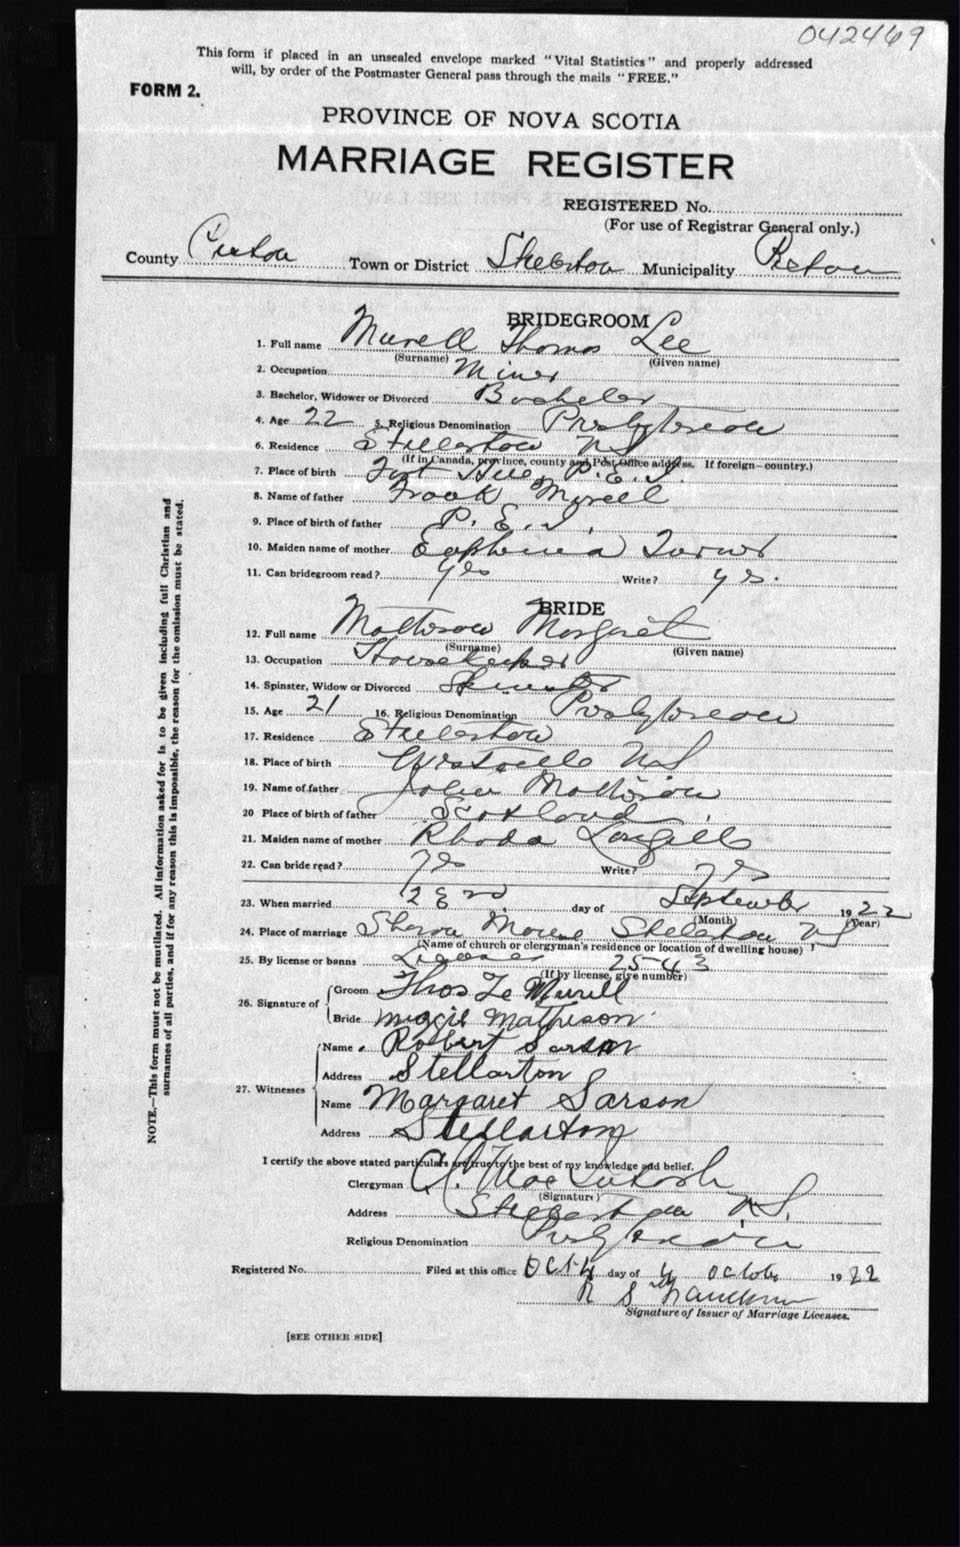 042469
This form if placed in an unsealed envelope marked "Vital Statistics" and properly addressed
will, by order of the Postmaster General pass through the mails "FREE."
FORM 2.
PROVINCE OF NOVA SCOTIA
MARRIAGE REGISTER
REGISTERED No.
(For use of Registrar General only.)
County Pictou Town or District Stellarton Municipality Pictou
BRIDEGROOM
1. Full name Murell Thomas Lee
(Surname) (Given name)
2. Occupation Miner
3. Bachelor, Widower or Divorced Bachelor
4. Age 22 5. Religious Denomination Presbyterian
6. Residence Stellarton NS
(If in Canada, province, county and Post Office address. If foreign—country.)
7. Place of birth P.E.I.
8. Name of father Frank Murell
9. Place of birth of father P. E. I.
10. Maiden name of mother Euphemia Turner
11. Can bridegroom read? yes Write? yes.
BRIDE
12. Full name Matheson Margaret
(Surname) (Given name)
13. Occupation Housekeeper
14. Spinster, Widow or Divorced Spinster
15. Age 21 16. Religious Denomination Presbyterian
17. Residence Stellarton
18. Place of birth Westville NS
19. Name of father John Matheson
20 Place of birth of father Scotland
21. Maiden name of mother Rhoda Langille
22. Can bride read? yes Write? yes
23. When married day of September 1922
(Month) (Year)
24. Place of marriage Sharon Manse Stellarton NS
(Name of church or clergyman's residence or location of dwelling house)
25. By license or banns License 2543
(If by license, give number)
26. Signature of Groom Thos Le Murell
Bride Maggie Matheson
27. Witnesses Name Robert Sarson
Address Stellarton
Name Margaret Sarson
Address Stellarton
I certify the above stated particulars are true to the best of my knowledge and belief.
Clergyman MacIntosh
(Signature)
Address Stellarton N.S.
Religious Denomination Presbyterian
Registered No. Filed at this office Oct 4 day of 4 October 1922
R S
Signature of Issuer of Marriage Licenses.
[SEE OTHER SIDE]
NOTE.—This form must not be mutilated. All information asked for is to be given including full Christian and
surnames of all parties, and if for any reason this is impossible, the reason for the omission must be stated.